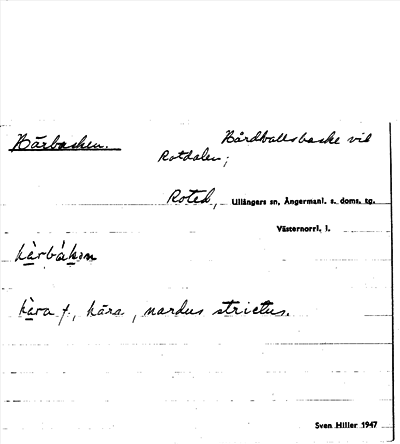 Hårbasken. Hårdvallsbacke vid
Rotdalen;
Roted, Ullångers sn, Ångermanl. s. doms. tg.
Västernorrl. l.
hårbåkən
håra f., håra, nardus strictus.
Sven Hiller 1947